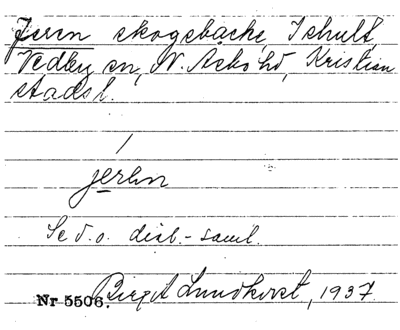 Jern skogsbacke, I shult
Vedby sn, N. Åsbo hd, Kristian
stads l.
jern
Se d.o. dial.-saml.
Nr 5506. Birgit Lundkvist, 1937